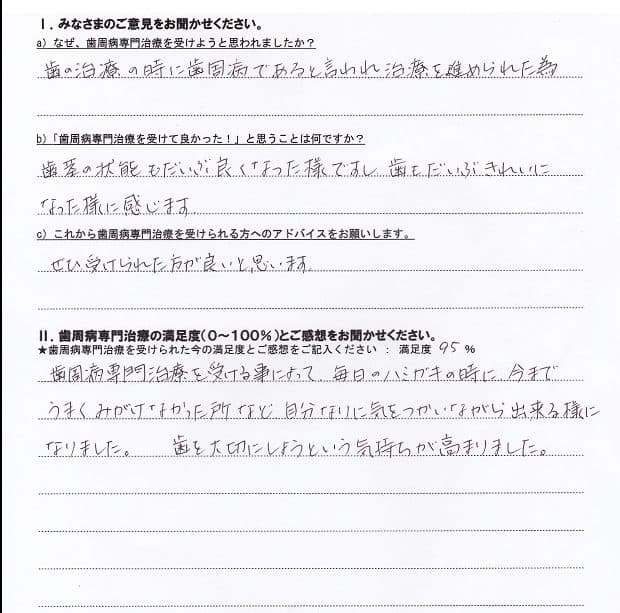 I. みなさまのご意見をお聞かせください。
a) なぜ、歯周病専門治療を受けようと思われましたか？
歯の治療の時に歯周病であると言われ治療を進められた為
b)「歯周病専門治療を受けて良かった！」と思うことは何ですか？
歯茎の状態もだいぶ良くなった様ですし 歯もだいぶきれいに
なった様に感じます
c) これから歯周病専門治療を受けられる方へのアドバイスをお願いします。
ぜひ受けられた方が良いと思います
II. 歯周病専門治療の満足度(0～100%)とご感想をお聞かせください。
★歯周病専門治療を受けられた今の満足度とご感想をご記入ください ： 満足度 95 %
歯周病専門治療を受ける事によって 毎日のハミガキの時に 今まで
うまくみがけなかった所など 自分なりに気をつかいながら出来る様に
なりました。 歯を大切にしようという気持ちが高まりました。